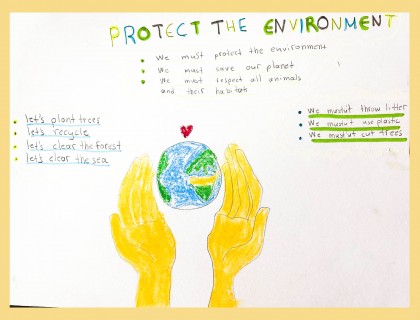 PROTECT THE ENVIRONMENT
We must protect the environment
We must save our planet
We must respect all animals
and their habitats
let's plant trees
let's recycle
let's clear the forest
let's clear the sea
We mustn't throw litter
We mustn't use plastic
We mustn't cut trees